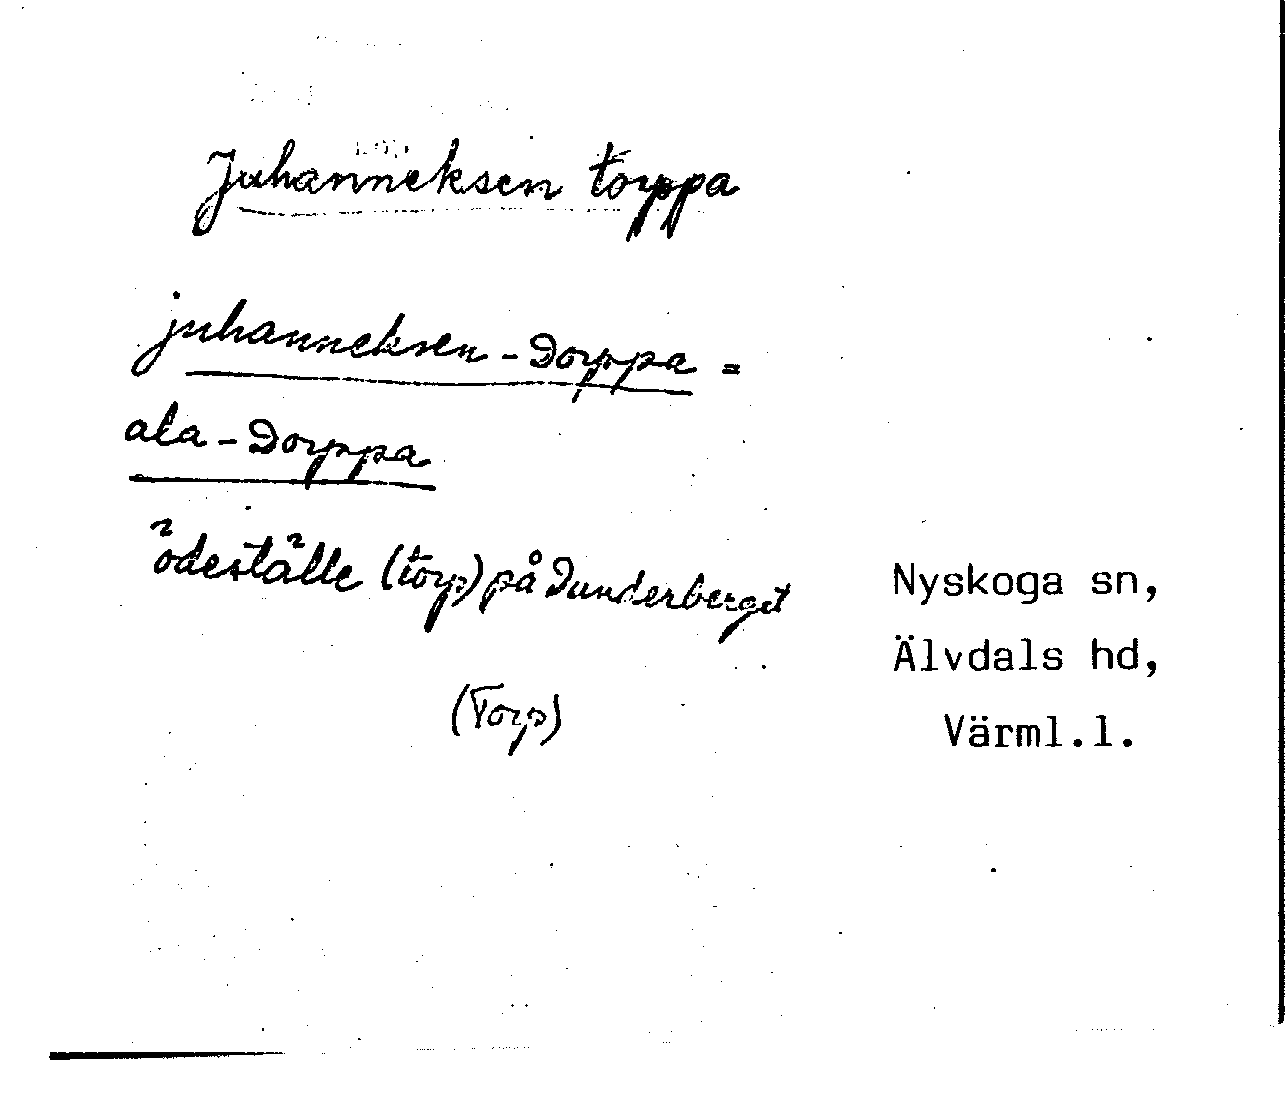 Juhanneksen torppa
juhanneksen-Dorppa =
ala-Dorppa
ödeställe (torp) på Dunderberget
(Torp)
Nyskoga sn,
Älvdals hd,
Värml.l.